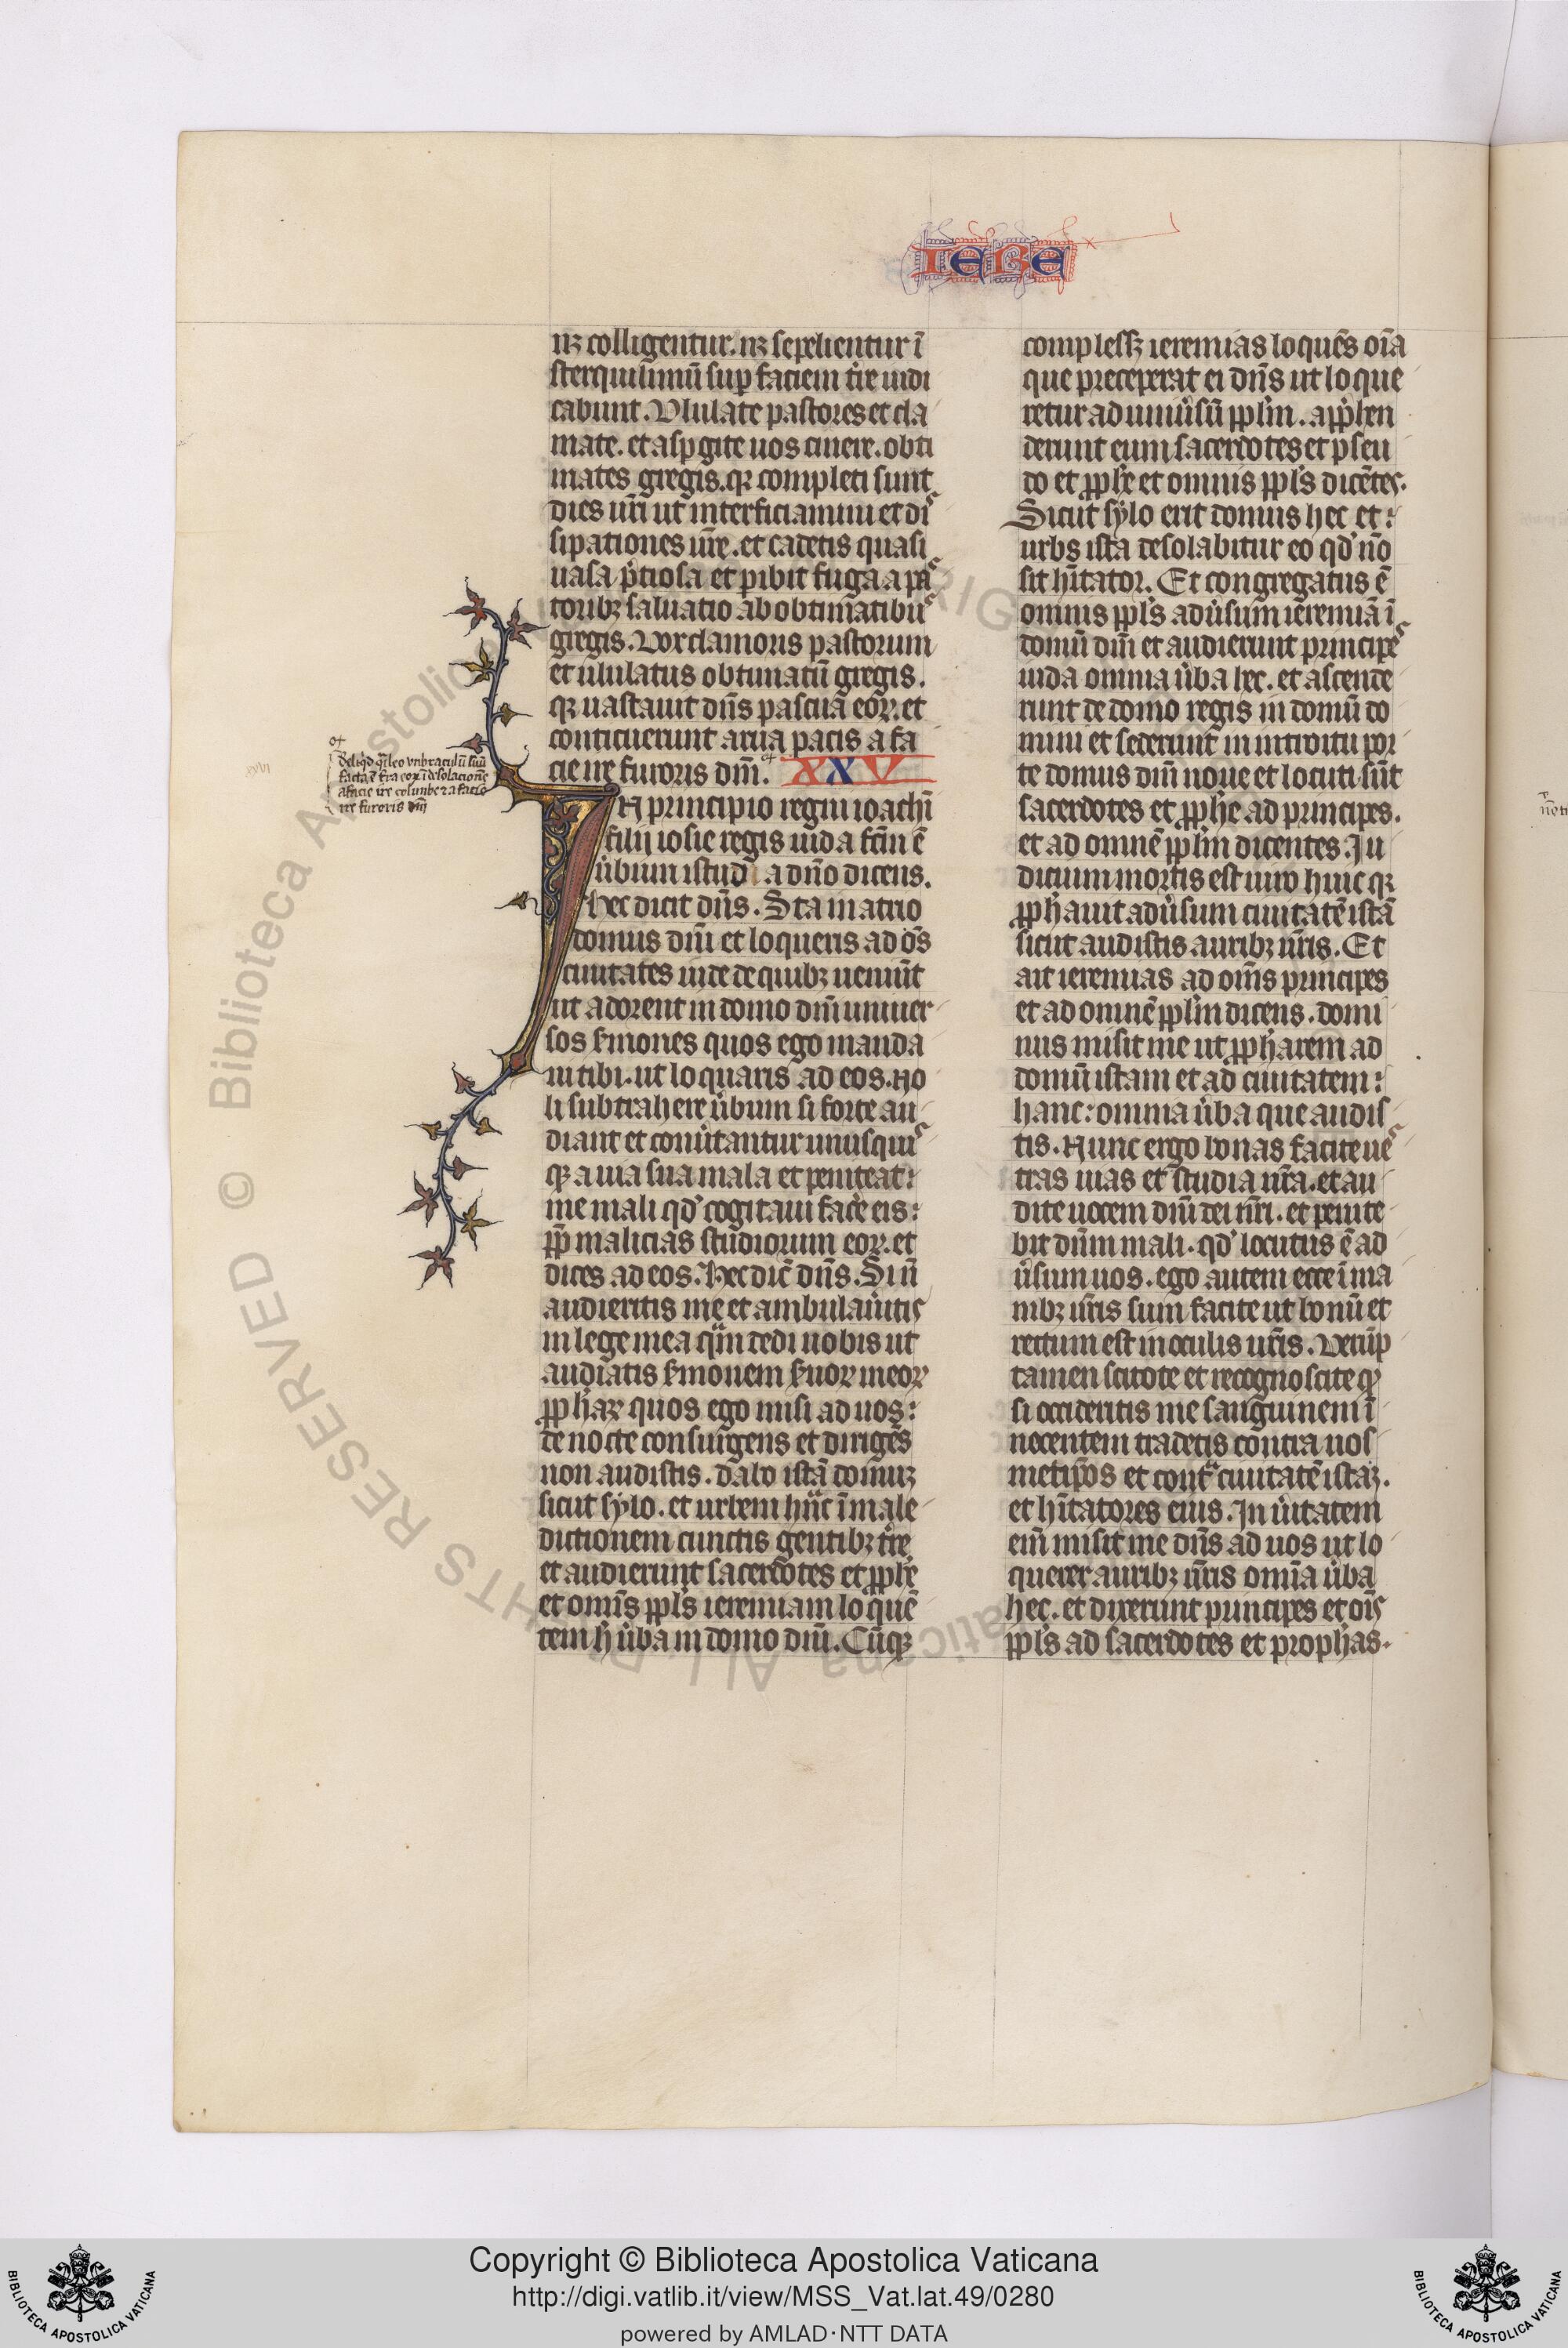 IERE
nꝫ colligentur. nꝫ sepelientur ī
sterquilinīu sup faciem tr̄e uidi
cabunt. Ululate pastores et cla
mate. et aspgite uos cinere. obti
mates gregis. qꝛ completi sunt
dies ur̄i ut interficiamini et dis
sipationes ur̄e. et cadetis quasi
uasa p̄tiosa et ꝑibit fuga a pas
toribꝫ saluatio ab obtimatibus
gregis. Uox clamoris pastorum
et ululatus obtimatū gregis.
qꝛ uastauit dn̄s pascuā eoꝝ. et
conticuerunt arua pacis a fa
cie ire furoris dn̄i.
XXV
dereliq̄d q̄si leo vmbraculū suū
facta ē terra eoꝝ ī desolacionē
a facie ire colunbe ⁊ a facie
ire furoris dn̄i
xxvi
IN principio regni ioachī
filij iosie regis iuda fc̄m ē
ūbum istud a dn̄o dicens.
Hec dicit dn̄s. Sta in atrio
domus dn̄i et loqueris ad ōs
ciuitates iude de quibꝫ ueniūt
ut adorent in domo dn̄i uniuer
sos ẜmones quos ego manda
ui tibi. ut loquaris ad eos. No
li subtrahere ūbum si forte au
diant et conūtantur unusquis
qꝫ a uia sua mala et peniteat:
me mali qd̓ cogitaui facẻ eis:
ꝓp̄ malicias studiorum eoꝝ. et
dices ad eos. Hec dic̄ dn̄s. Si n̄
audieritis me et ambulaūitis
in lege mea qm̄ dedi uobis ut
audiatis ẜmonem ẜuoꝝ meoꝝ
ꝓphaꝝ quos ego misi ad uos:
de nocte consurgens et dirigēs
non audistis. dabo istā domuꝫ
sicut sylo. et urbem hn̄c ī male
dictionem cunctis gentibꝫ tr̄e
et audierunt sacerdotes et ꝓphe
et omīs ppl̄s ieremiam loquē
tem h̄ ūba in domo dn̄i. Cūqꝫ
complessꝫ ieremias loquēs oīa
que preceperat ei dn̄s ut loque
retur ad uniūsū ppl̄m. apphen
derunt eum sacerdotes et pseu
do et ꝓphe et omnis ppl̄s dicētes.
Sicut sylo erit domus hec et:
urbs ista desolabitur eo qd̓ nō
sit hītator. Et congregatus ē
omnis ppl̄s adūsum ieremiā ī
domū dn̄i et audierunt principes
iuda omnia ūba hec. et ascende
runt de domo regis in domū do
mini et sederunt in introitu por
te domus dn̄i noue et locuti sūt
sacerdotes et ꝓphe ad principes.
et ad omnē ppl̄m dicentes. Ju
dicium mortis est uiro huic qꝛ
ꝓphauit adūsum ciuitatē istā
sicut audistis auribꝫ ur̄is. Et
ait ieremias ad om̄s principes
et ad omnē ppl̄m dicens. domi
nus misit me ut ꝓpharem ad
domū istam et ad ciuitatem:
hanc: omnia ūba que audis
tis. Nunc ergo bonas facite ues
tras uias et studia ur̄a. et au
dite uocem dn̄i dei ur̄i. et penite
bit dn̄m mali. qd̓ locutus ē ad
ūsum uos. ego autem ecce ī ma
nibꝫ ur̄is sum facite ut bonū et
rectum est in oculis ur̄is. Verūp
tamen scitote et recognoscite qꝫ
si occideritis me sanguinem ī
nocentem tradetis contra uos
metip̄os et contᵃ ciuitatē istaꝫ.
et hītatores eius. In ūitatem
eni̅ misit me dn̄s ad uos ut lo
querer auribꝫ ur̄is omīa ūba
hec. et dixerunt principes et oīs
ppl̄s ad sacerdotes et prophas.
Copyright © Biblioteca Apostolica Vaticana
http://digi.vatlib.it/view/MSS_Vat.lat.49/0280
powered by AMLAD·NTT DATA
BIBLIOTECA APOSTOLICA VATICANA
BIBLIOTECA APOSTOLICA VATICANA